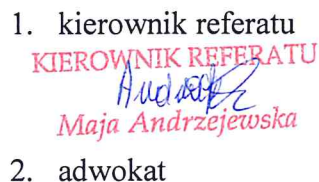 1. kierownik referatu
KIEROWNIK REFERATU
Maja Andrzejewska
2. adwokat